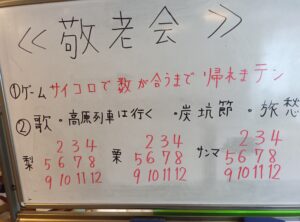 ≪ 敬老会 ≫
①ゲーム サイコロで数が合うまで帰れまテン
②歌・高原列車は行く ・炭坑節・旅愁
梨 2 3 4 5 6 7 8 9 10 11 12
栗 2 3 4 5 6 7 8 9 10 11 12
サンマ 2 3 4 5 6 7 8 9 10 11 12